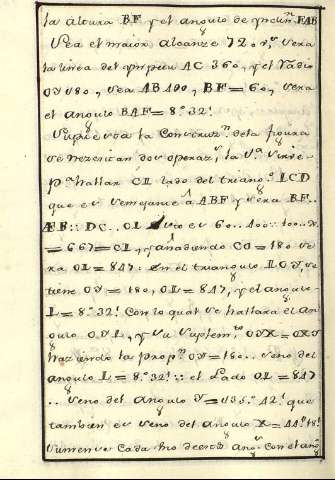 la altura BF y el angulo de ynclin.n FAB
Sea el maior alcanze 720 vs, sera
la linea del ympetu AC 360, y el radio
OY 180, sea AB 400, BF = 60, sera
el angulo BAF = 8° 32'
Supuesta la Construz.n dela figura
se nezecitan dos operaz.s, la 1.a sirve
p.a hallar CL lado del triang.o LCD
que es semejante à ABF y sera BF..
AB :: DC .. CL esto es 60.. 400:: 100..
= 667 = CL, y añadiendo CO = 180 se
ra OL = 847. En el triangulo LOY, se
tiene OY = 180, OL = 847, y el angulo
L = 8° 32' Con lo qual se hallara el an
gulo OYL, y su suplem.to OYX = OXY
haziendo la prop.n OY = 180.. seno del
angulo L = 8° 32' :: el Lado OL = 847
.. seno del angulo Y = 135° 42' que
tambien es seno del angulo X = 44° 18'
sumense cada uno de estos ang.s con el ang.o